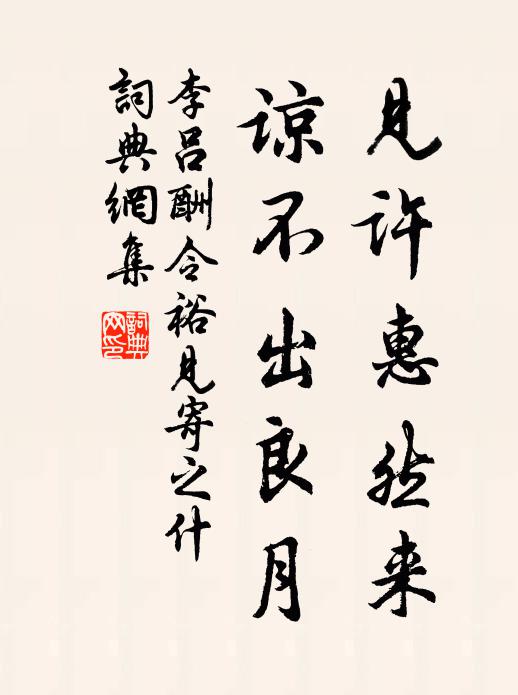 見许惠然来
谅不出良月
李吕酬令裕見寄之什
詞典網集
詞典網印